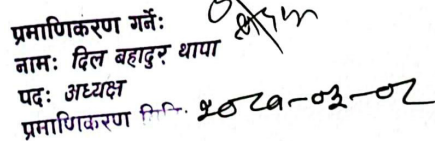 प्रमाणिकरण गर्नेः
नामः दिल बहादुर थापा
पदः अध्यक्ष
प्रमाणिकरण मिति. २०८१-०३-०८